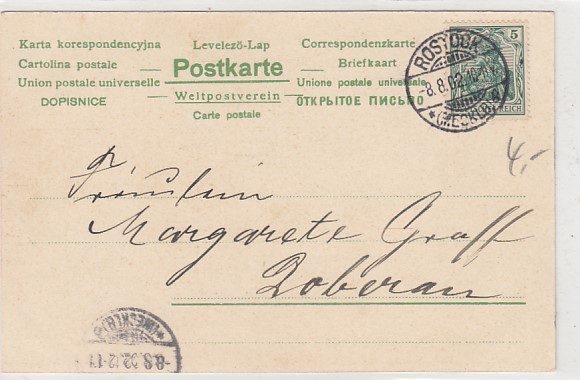 Karta korespondencyjna
Levelező-Lap
Correspondenzkarte
Cartolina postale
Postkarte
Briefkaart
Union postale universelle
Unione postale universale
DOPISNICE
Weltpostverein
ОТКРЫТОЕ ПИСЬМО
Carte postale
5
REICH
ROSTOCK
-8.8.02.10-11
*(MECKLB)
4,-
Fräulein
Margarete Graff
Doberan
(MECKLB)
-8.8.02.12-1